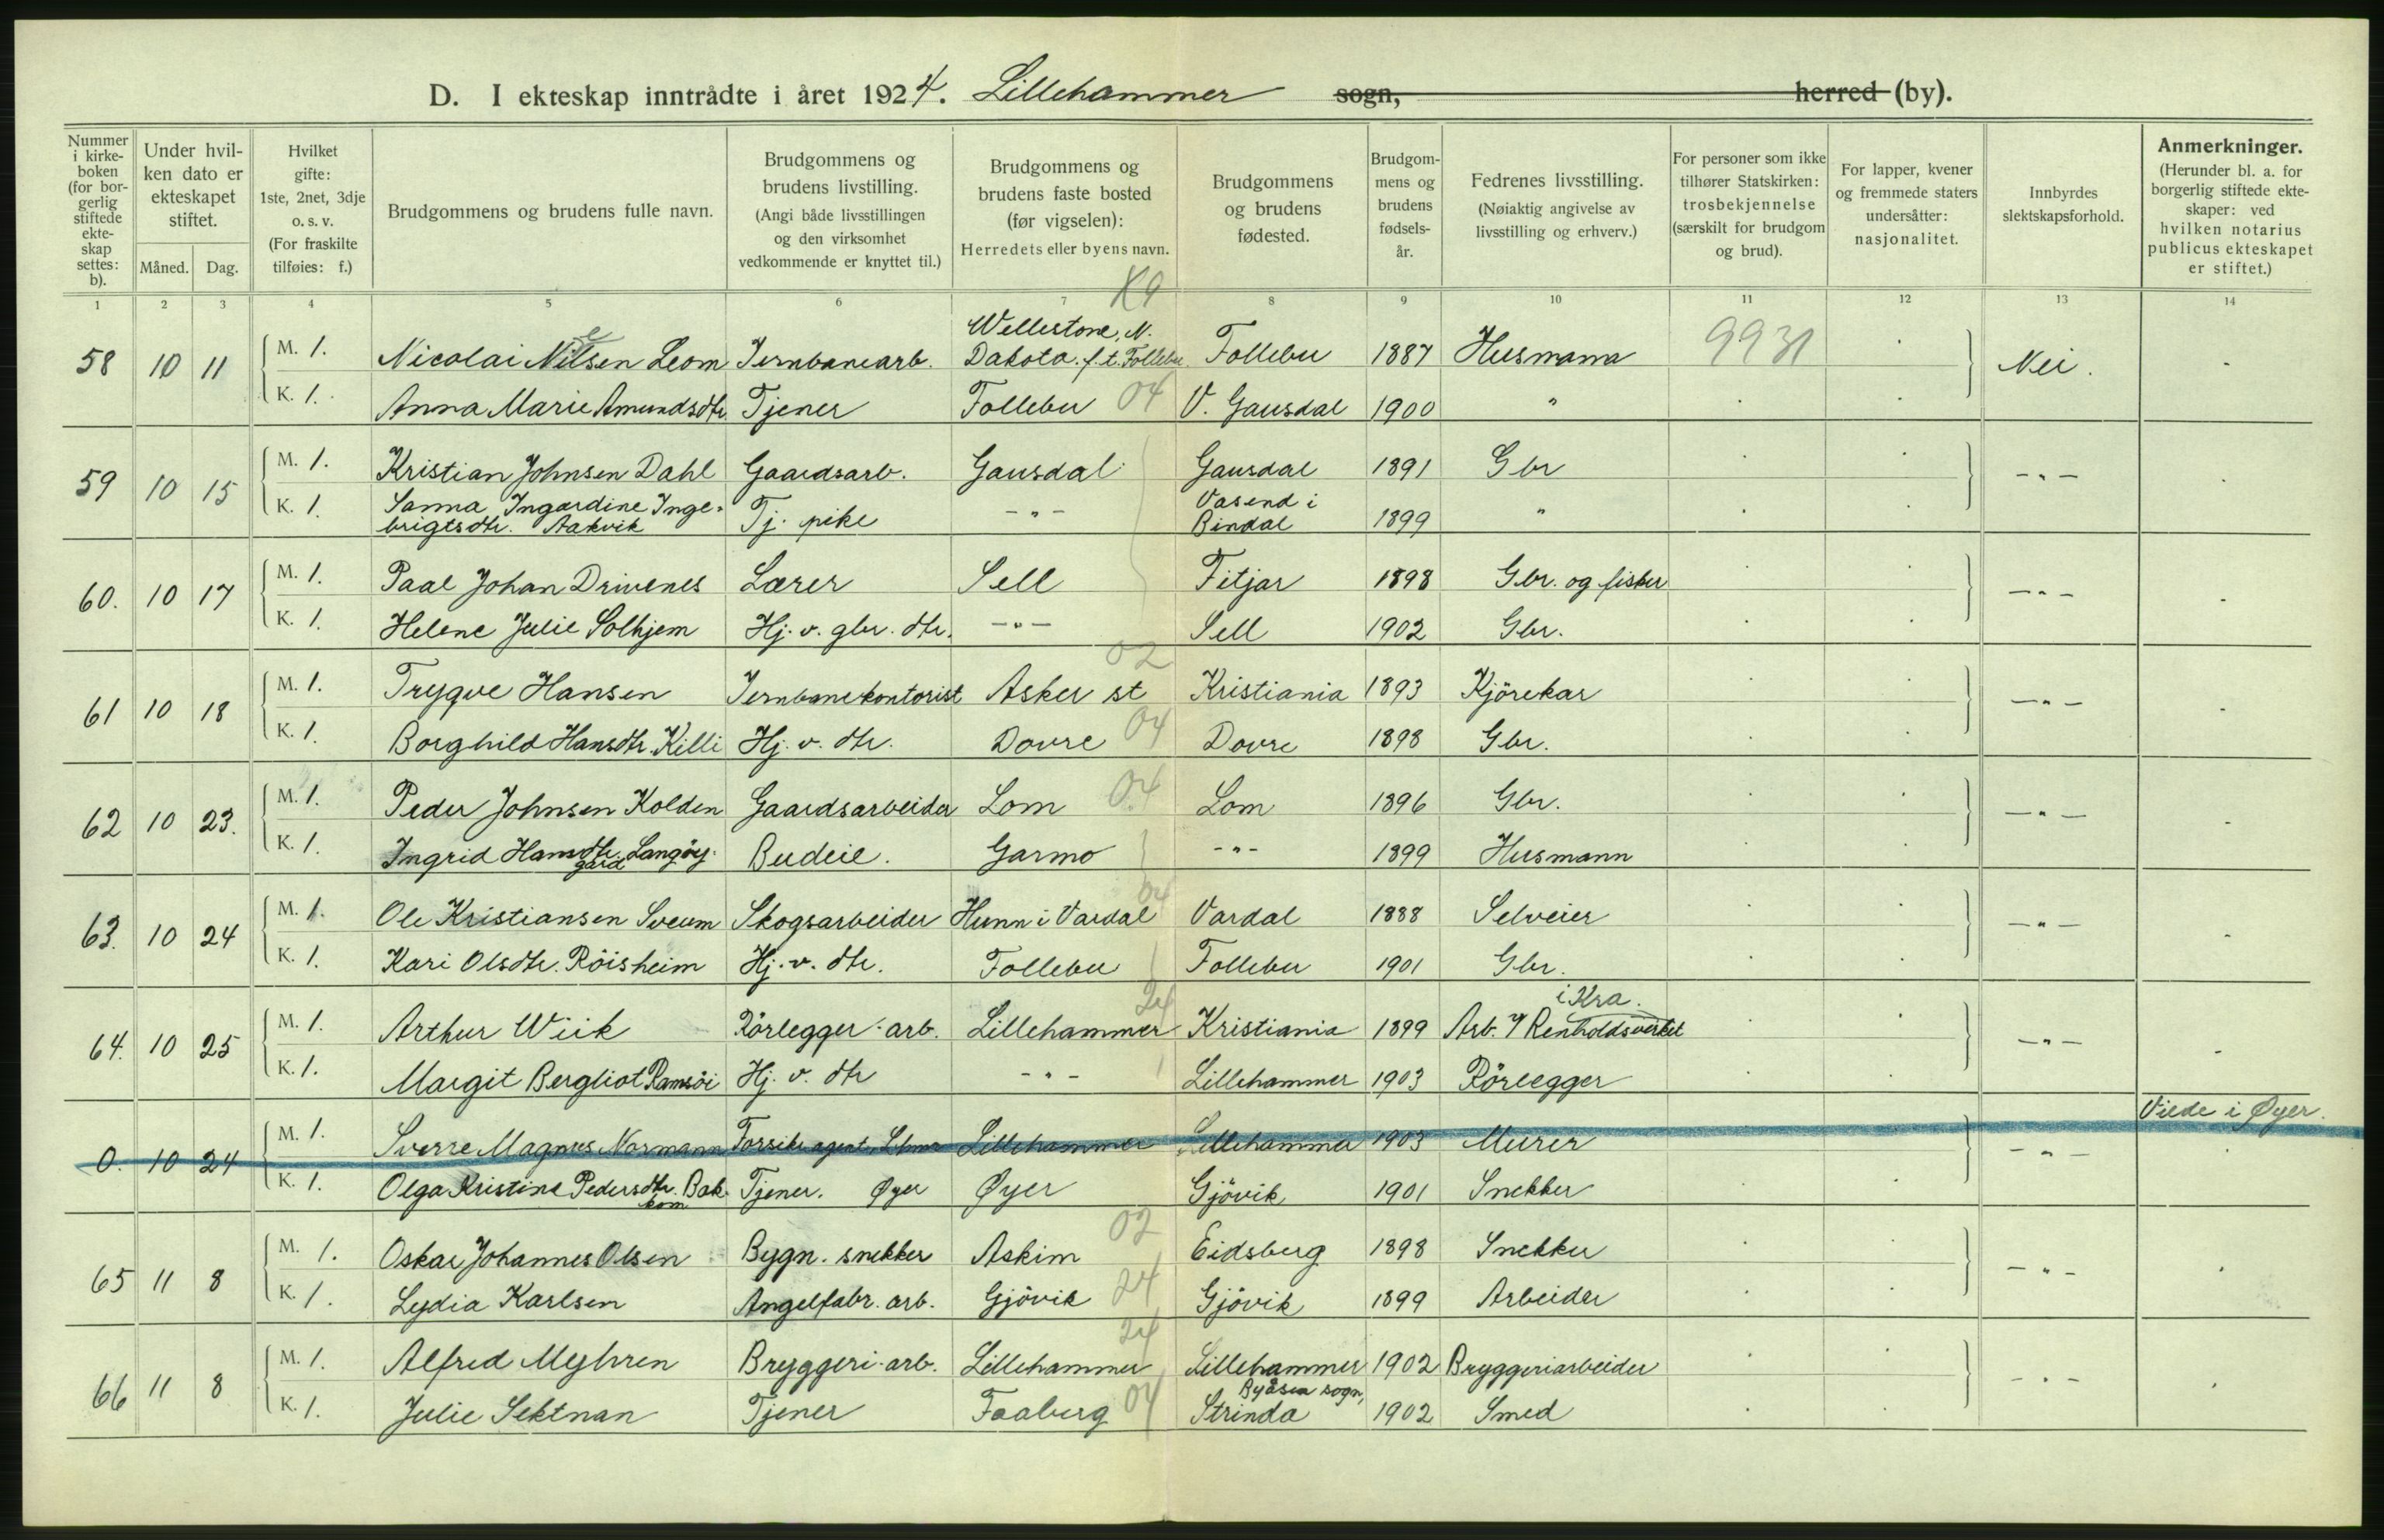 D. I ekteskap inntrådte i året 1924. Lillehammer sogn, herred (by).
Nummer i kirkeboken (for borgerlig stiftede ekteskap settes: b).
Under hvilken dato er ekteskapet stiftet.
Måned. Dag.
Hvilket gifte: 1ste, 2net, 3dje o. s. v. (For fraskilte tilføies: f.)
Brudgommens og brudens fulle navn.
Brudgommens og brudens livstilling. (Angi både livsstillingen og den virksomhet vedkommende er knyttet til.)
Brudgommens og brudens faste bosted (før vigselen): Herredets eller byens navn.
Brudgommens og brudens fødested.
Brudgommens og brudens fødsels-år.
Fedrenes livsstilling. (Nøiaktig angivelse av livsstilling og erhverv.)
For personer som ikke tilhører Statskirken: trosbekjennelse (særskilt for brudgom og brud).
For lapper, kvener og fremmede staters undersåtter: nasjonalitet.
Innbyrdes slektskapsforhold.
Anmerkninger. (Herunder bl. a. for borgerlig stiftede ekteskaper: ved hvilken notarius publicus ekteskapet er stiftet.)
1 2 3 4 5 6 7 8 9 10 11 12 13 14
58 10 11 M. 1. Nicolai Nilsen Leom Jernbanearb. Wellestone, N. Dakota. f. t. Follebu Follebu 1887 Husmann 9931 Nei.
K. 1. Anna Marie Amundsdtr. Tjener Follebu 04 V. Gausdal 1900 "
59 10 15 M. 1. Kristian Johnsen Dahl Gaardsarb. Gausdal Gausdal 1891 Gbr - " -
K. 1. Sanna Ingardine Ingebrigtsdtr. Aakvik Tj. pike - " - Vasend i Bindal 1899 "
60. 10 17 M. 1. Paal Johan Drivenes Lærer Sell Fitjar 1898 Gbr. og fisker - " -
K. 1. Helene Julie Solhjem Hj. v. gbr. dtr. - " - Sell 1902 Gbr.
61 10 18 M. 1. Trygve Hansen Jernbanekontorist Asker st 02 Kristiania 1893 Kjörekar - " -
K. 1. Borghild Hansdtr. Killi Hj. v. dtr. Dovre 04 Dovre 1898 Gbr.
62 10 23. M. 1. Peder Johnsen Kolden Gaardsarbeider Lom 04 Lom 1896 Gbr. - " -
K. 1. Ingrid Hansdtr. Langöygard Budeie. Garmo - " - 1899 Husmann
63. 10 24 M. 1. Ole Kristiansen Sveum Skogsarbeider Hunn i Vardal 04 Vardal 1888 Selveier - " -
K. 1. Kari Olsdtr. Röisheim Hj. v. dtr. Follebu Follebu 1901 Gbr.
64. 10 25 M. 1. Arthur Wiik Rörlegger arb. Lillehammer 24 Kristiania 1899 Arb. v/ Renholdsverket i Kra. - " -
K. 1. Margit Bergliot Ramsöi Hj. v. dtr - " - Lillehammer 1903 Rörlegger
0. 10 24 M. 1. Sverre Magnus Normann Forsikr agent, Lhmr Lillehammer Lillehammer 1903 Murer - " - Viede i Øyer.
K. 1. Olga Kristine Pedersdtr. Bakkom Tjener. Øyer Øyer Gjövik 1901 Snekker
65 11 8 M. 1. Oskar Johannes Olsen Bygn. snekker Askim 02 Eidsberg 1898 Snekker - " -
K. 1. Lydia Karlsen Angelfabr. arb. Gjövik 24 Gjövik 1899 Arbeider
66 11 8 M. 1. Alfred Myhren Bryggeri arb. Lillehammer 24 Lillehammer 1902 Bryggeriarbeider - " -
K. 1. Julie Sektnan Tjener Faaberg 04 Byåsen sogn, Strinda 1902 Smed